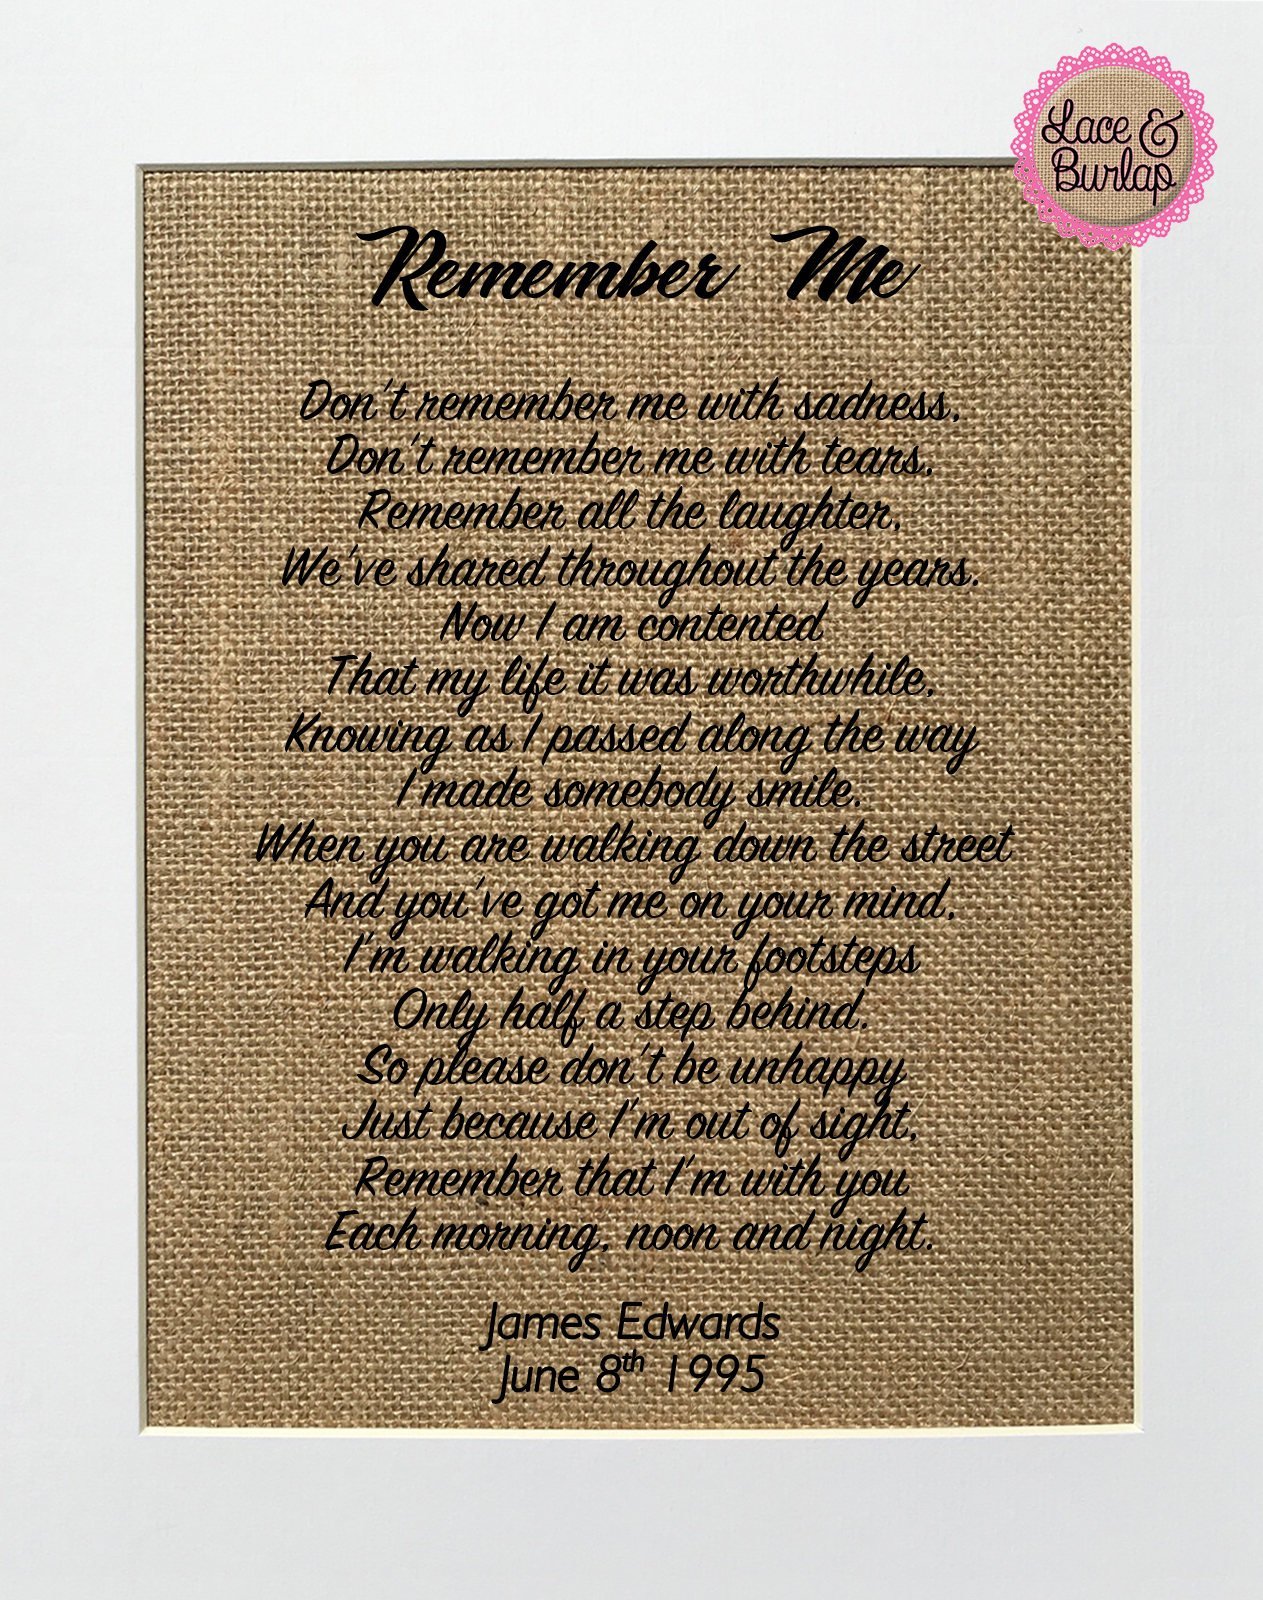 Lace &
Burlap
Remember Me
Don't remember me with sadness,
Don't remember me with tears,
Remember all the laughter,
We've shared throughout the years.
Now I am contented
That my life it was worthwhile,
Knowing as I passed along the way
I made somebody smile.
When you are walking down the street
And you've got me on your mind,
I'm walking in your footsteps
Only half a step behind.
So please don't be unhappy
Just because I'm out of sight,
Remember that I'm with you
Each morning, noon and night.
James Edwards
June 8th 1995